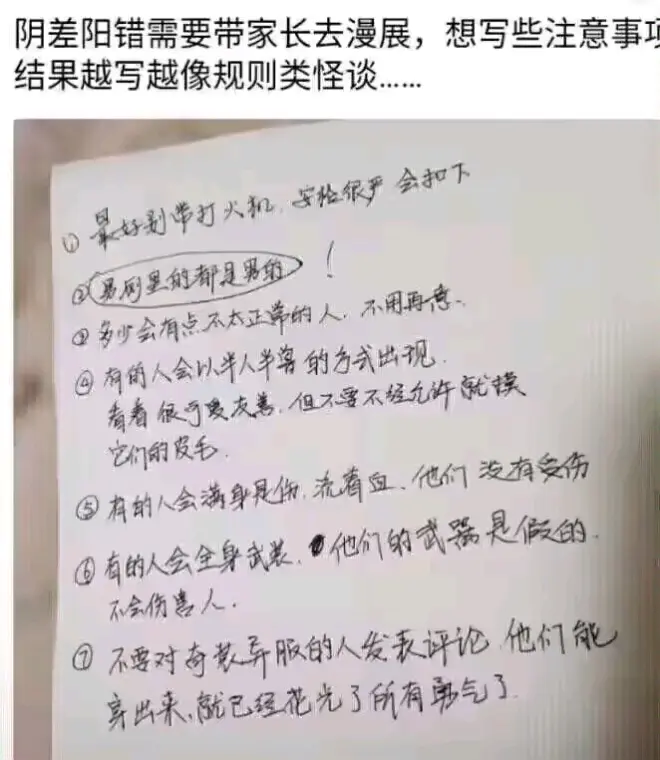 阴差阳错需要带家长去漫展，想写些注意事项
结果越写越像规则类怪谈……
① 最好别带打火机，安检很严 会扣下
② 男厕里的都是男的！
③ 多少会有点不太正常的人，不用再意。
④ 有的人会以半人半兽的方式出现.
看着很可爱友善，但不要不经允许就摸
它们的皮毛.
⑤ 有的人会满身是伤，流着血，他们没有受伤
⑥ 有的人会全身武装，他们的武器是假的.
不会伤害人.
⑦ 不要对奇装异服的人发表评论，他们能
穿出来,就已经花光了所有勇气了